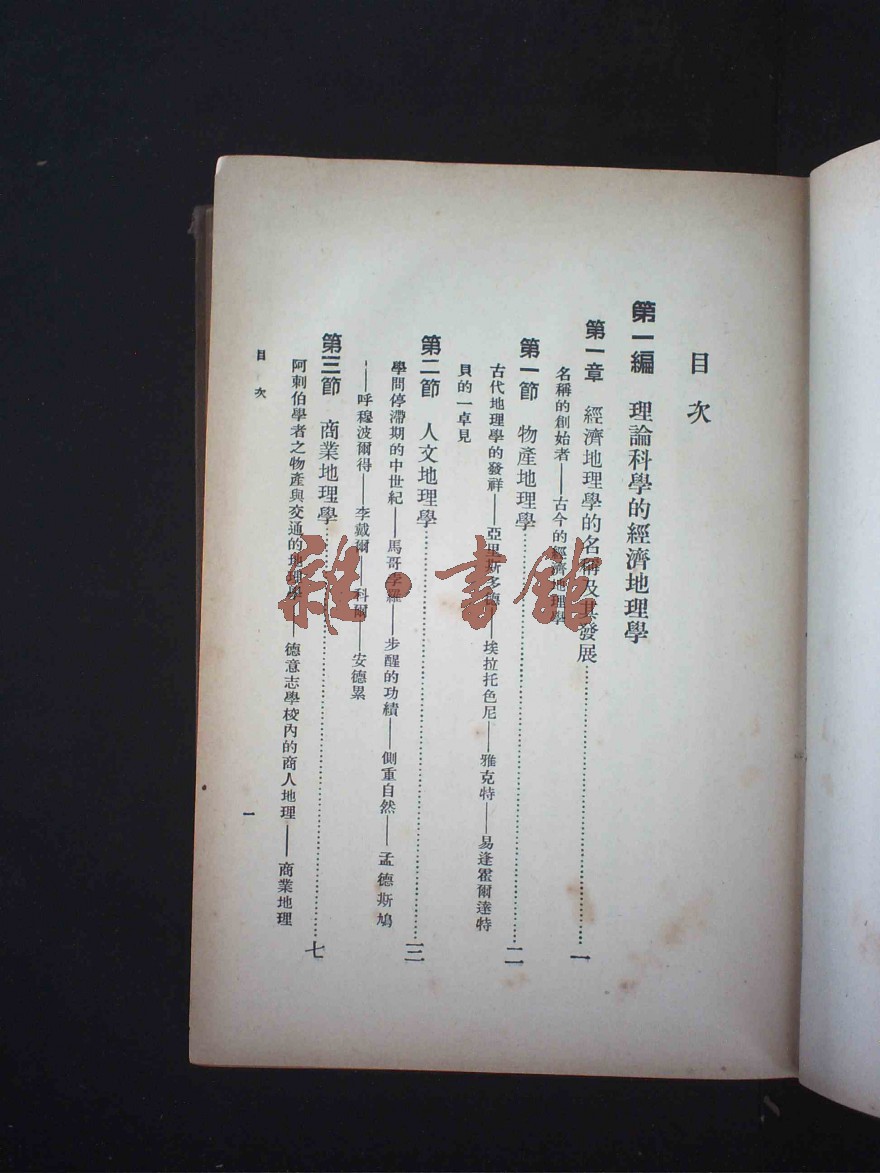 目次
第一編 理論科學的經濟地理學
第一章 經濟地理學的名稱及其發展……一
名稱的創始者——古今的經濟地理學
第一節 物產地理學……二
古代地理學的發祥——亞里斯多德——埃拉托色尼——雅克特——易逢霍爾達特
貝的一卓見
第二節 人文地理學……三
學問停滯期的中世紀——馬哥孛羅——步醒的功績——側重自然——孟德斯鳩
——呼穆波爾得——李戴爾——科爾——安德累
第三節 商業地理學……七
阿剌伯學者之物產與交通的地理學——德意志學校內的商人地理——商業地理
目次
一
雜·書館